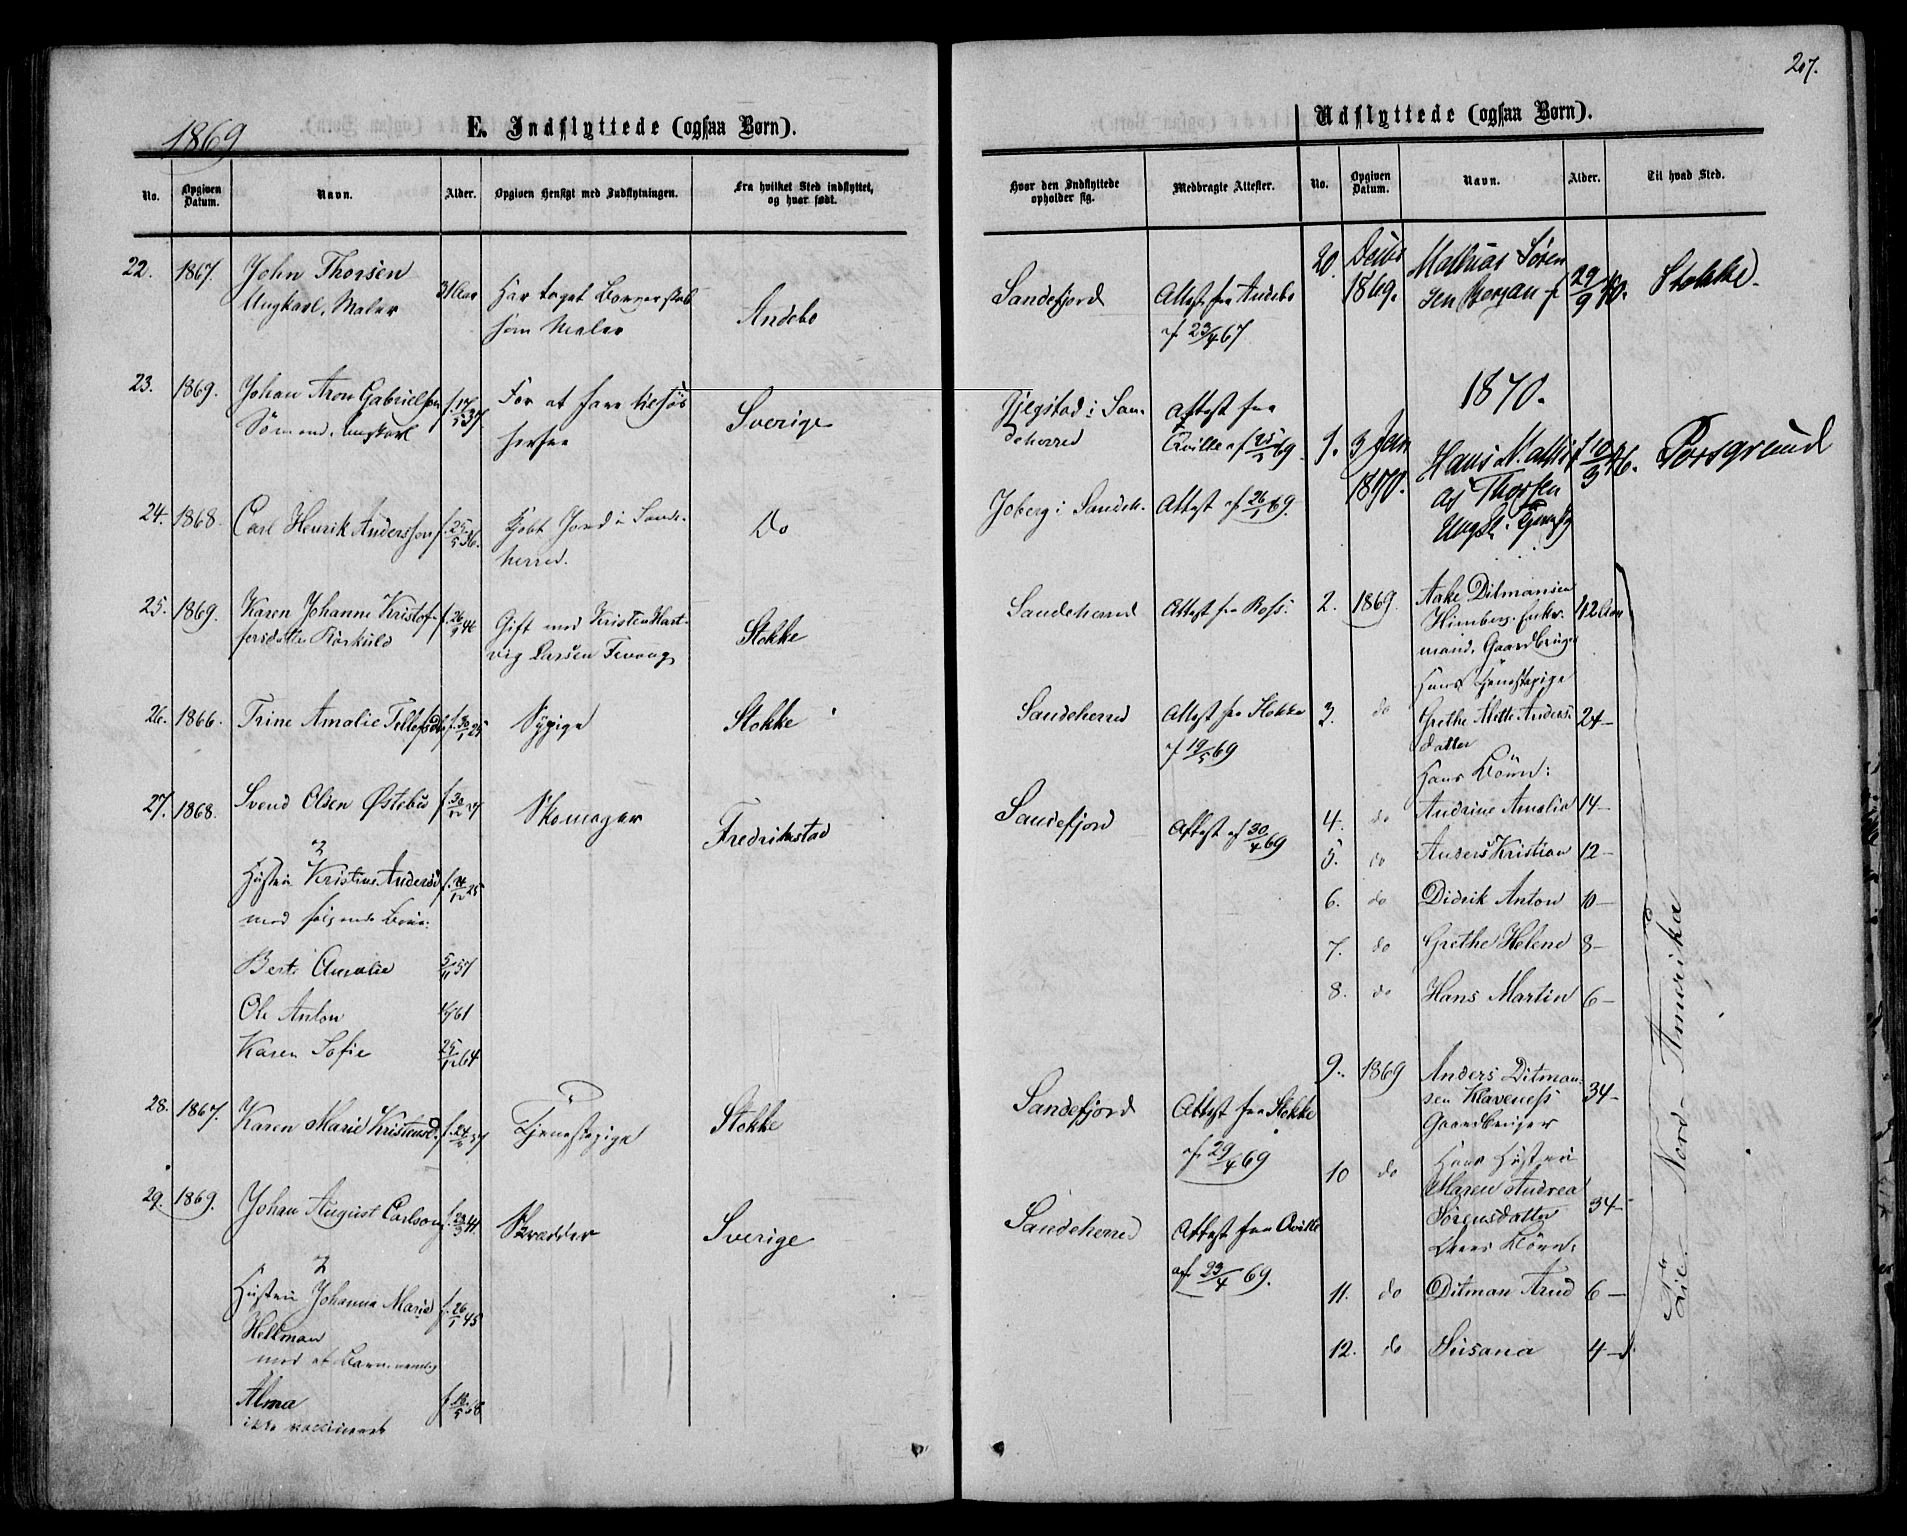 207.
1869
E. Indflyttede (ogsaa Børn).
No.
Opgiven Datum.
Navn.
Alder.
Opgiven Hensigt med Indflytningen.
Fra hvilket Sted indflyttet, og hvor født.
22. 1867. John Thorsen 31 Aar Har taget Borgerskab Andebo
Ungkarl, Maler som Maler
23. 1869. Johan Aron Gabrielsen f. 17/5 37 For at fare tilsøs Sverige
Sømand, Ungkarl herfra
24. 1868. Carl Henrik Andersson f. 25/5 36. Kjøbt Jord i Sande- Do
herred.
25. 1869. Karen Johanne Kristof- f. 26/9 46 Gift med Kristen Hart- Stokke
fersdatter vig Larsen Fevang
26. 1866. Trine Amalie f. 30/1 25 Sypige Stokke
27. 1868. Svend Olsen Østebø Skomager Fredrikstad
&
Hustru Kristine Andersd
med følgende Børn:
Amalie 5/11 57
Ole Anton 61
Karen Sofie 25/12 64
28. 1867. Karen Marie Kristensd. Tjenestepige Stokke
29. 1869. Johan August Carlson f. 23/3 41. Skrædder Sverige
&
Hustru Johanna Maria f. 26/1 45
Hellman
med et Barn, nemlig
Alma
ikke vaccineret
Hvor den Indflyttede opholder sig.
Medbragte Attester.
Sandefjord Attest fra Andebo
af 23/4 67
Gjegstad i San- Attest fra
deherred Qville af 25/1 69
Joberg i Sandeh. Attest af 26/1 69.
Sandeherred Attest fra
Sandeherred Attest fra Stokke
af 19/5 69
Sandefjord Attest af 30/4 69
Sandefjord Attest fra Stokke
af 29/4 69
Sandeherred Attest fra Qville
af 23/4 69.
Udflyttede (ogsaa Børn).
No.
Opgiven Datum.
Navn.
Alder.
Til hvad Sted.
20. Mathias Søren 29/9 Stokke.
1869. sen
1870.
1. 3 Jan Hans f 10/3 46. Porsgrund
1870. Thorsen
2. 1869. Aake Ditmansen 42 Aar
Himberg,
mand, Gaardbruger
Hans Tjenestepige
3. do Grethe Mette Anders- 24-
datter
Hans Børn:
4. do Andrine Amalia 14-
5. do Anders Kristian 12-
6. do Didrik Anton 10-
7. do Grethe Helene 8-
8. do Hans Martin 6-
9. 1869 Anders Ditman- 34-
sen Klaveness
Gaardbruger
10 do Hans Hustru
Maren Andrea 34-
Sørensdatter
Deres Børn:
11. do Ditman Arnd 6-
12. do Susana 4-
Til Nord-Amerika